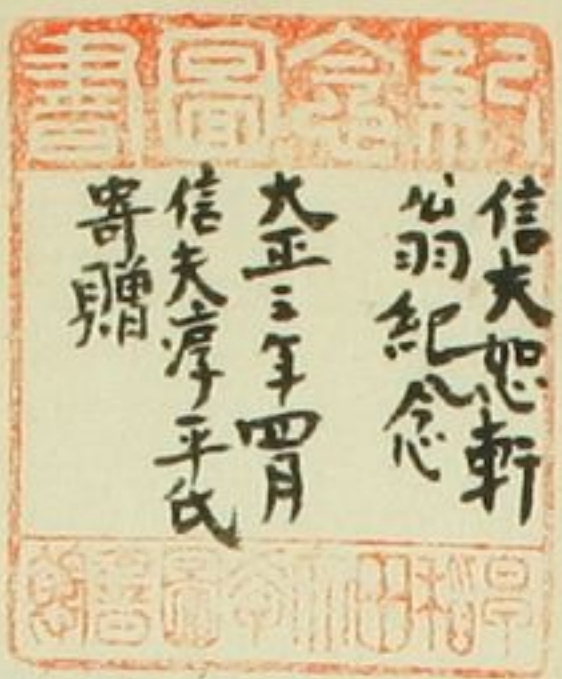 紀念圖書
信夫恕軒
翁紀念
大正三年四月
信夫淳平氏
寄贈
早稻田大學圖書館